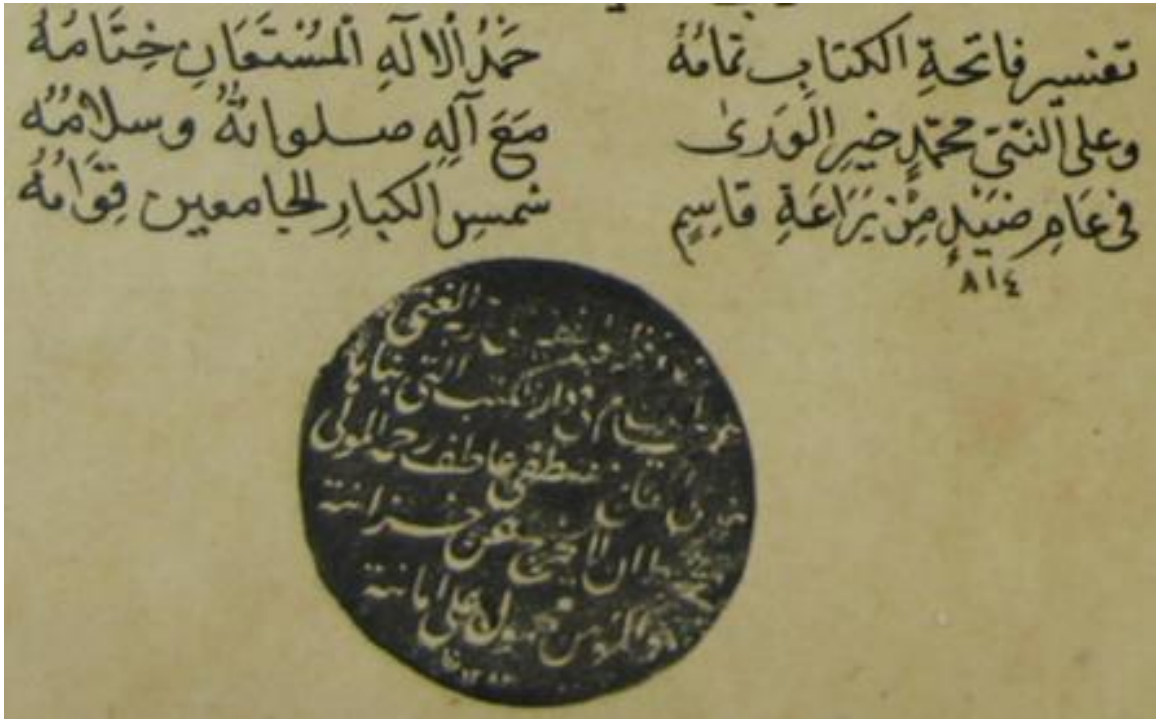 تفسير فاتحةِ الكتابِ تمامُهُ حَمْدُ الْالٰهِ الْمُسْتَعَانِ خِتَامُهُ
وعلى النَّبيّ محمّدٍ خيرِ الوَرىٰ مَعَ آلِهِ صلواتُهُ وسلامُهُ
فى عَامِ ضَيْدٍ مِنْ يَرَاعَةِ قَاسِمٍ شمسِ الكبارِ الجامعين قِوَامُهُ
٨١٤
الغنى
فى دار الكتب التى بناها
مصطفى عاطف رحمه المولى
ان لا يخرج عن خزانته
والمؤمن محمول على امانته